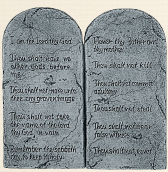 I am the Lord thy God
Thou shalt have no
other gods before
me
Thou shalt not make unto
thee any graven image
Thou shalt not take
the name of the Lord
thy God in vain
Remember the Sabbath
day, to keep it holy
Honor thy father and
thy mother
Thou shalt not kill
Thou shalt not commit
adultery
Thou shalt not steal
Thou shalt not bear
false witness
Thou shalt not covet